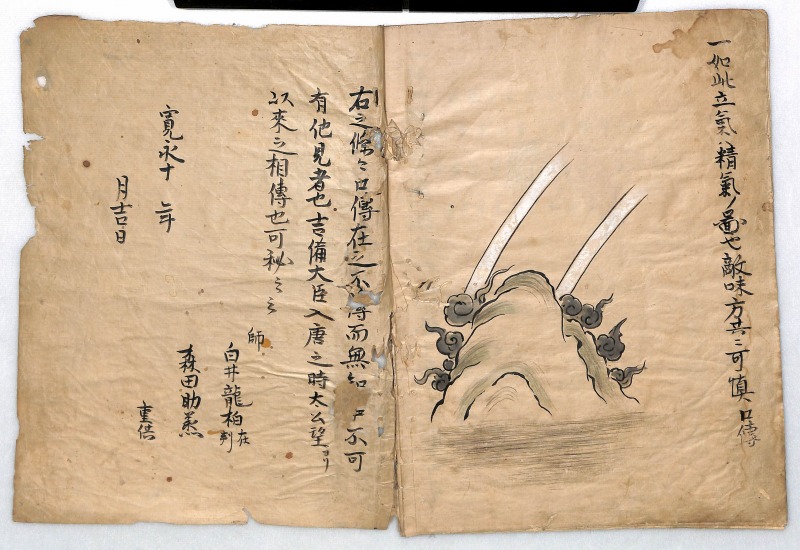 一如此立氣ハ精氣ノ圖也敵味方共ニ可慎口傳
右之條々口傳在之不得而無知 不可
有他見者也吉備大臣入唐之時太公望ヨリ
以來之相傳也可秘々々
寛永十二年
月吉日
師
白井龍柏在判
森田助
重信